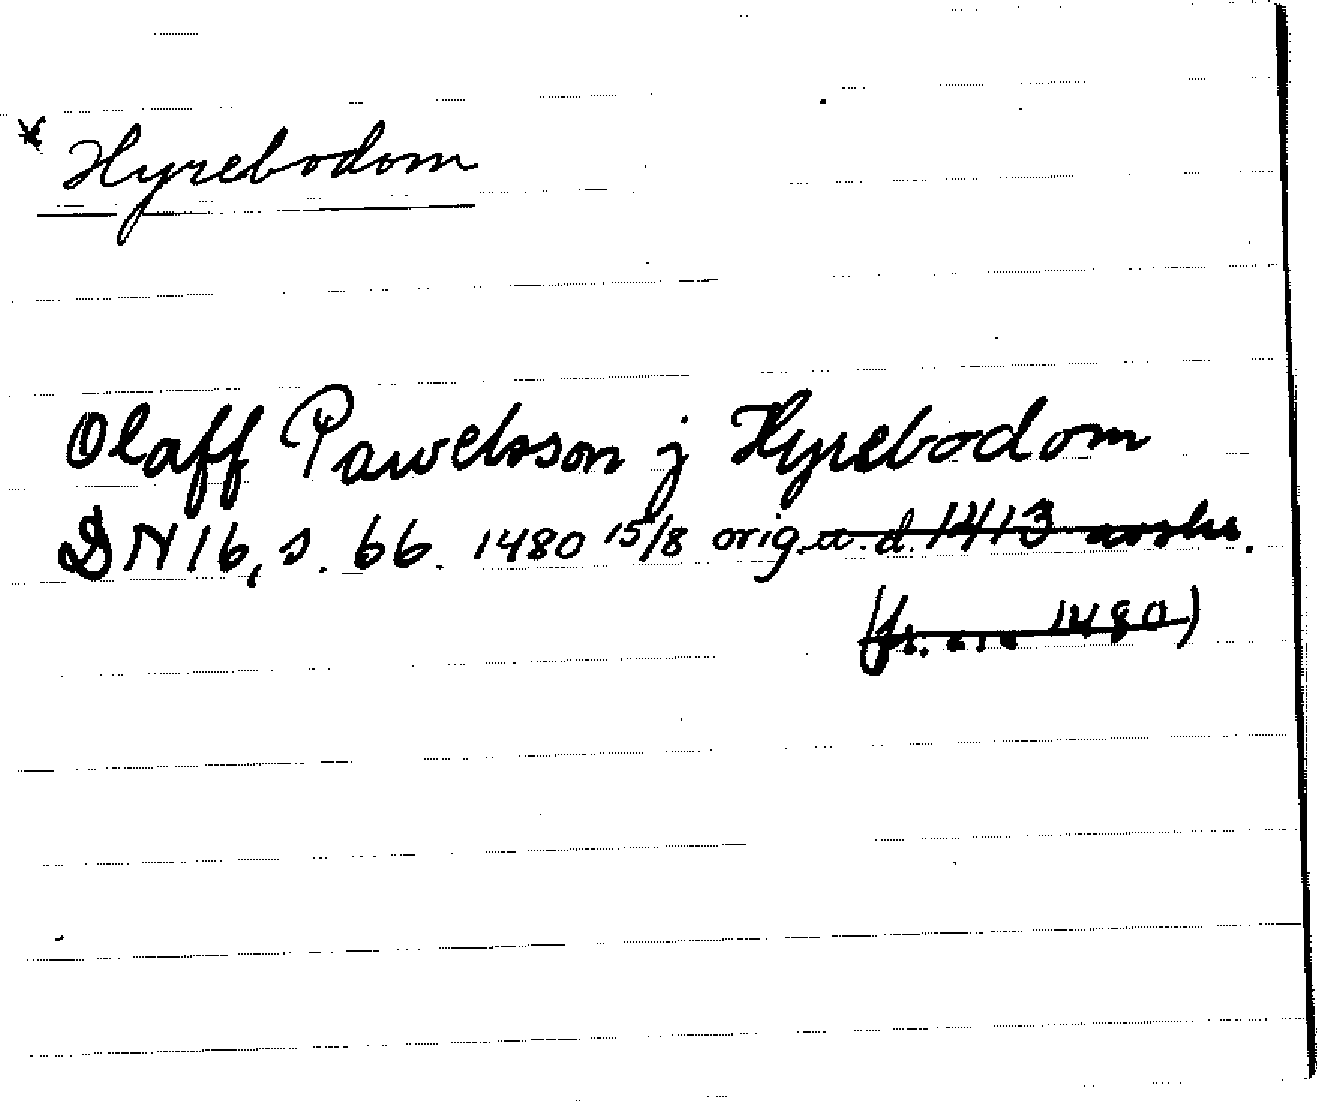 * Hyrebodom
Olaff Pawelsson j Hyrebodom
DN 16, s. 66. 1480 15/8 orig. u. d. 1413 avskr.
(fr. 1480)